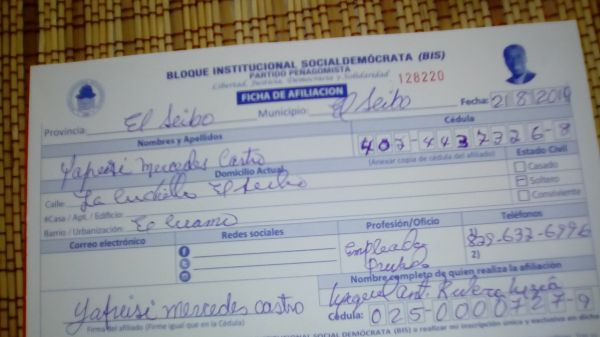 BLOQUE INSTITUCIONAL SOCIALDEMÓCRATA (BIS)
PARTIDO PEÑAGOMISTA
Libertad, Justicia, Democracia y Solidaridad
128220
FICHA DE AFILIACION
Provincia: El Seibo Municipio: El Seibo Fecha: 21 8 2019
Nombres y Apellidos Cédula
Yafreisi Mercedes Castro 402-4437326-8
Domicilio Actual (Anexar copia de cédula del afiliado) Estado Civil
Calle: La Cuchilla El Seibo
Casado
#Casa / Apt. / Edificio:
Soltero
Barrio / Urbanización: El Cuamo
Conviviente
Correo electrónico Redes sociales Profesión/Oficio Teléfonos
Empleada
1) 829-632-6996
2)
Nombre completo de quien realiza la afiliación
Yafreisi mercedes castro
Ant. Rivera
Firma del afiliado (Firme igual que en la Cédula)
Cédula: 025-0000727-9
INSTITUCIONAL SOCIALDEMÓCRATA (BIS) a realizar mi inscripción única y exclusiva en dicha